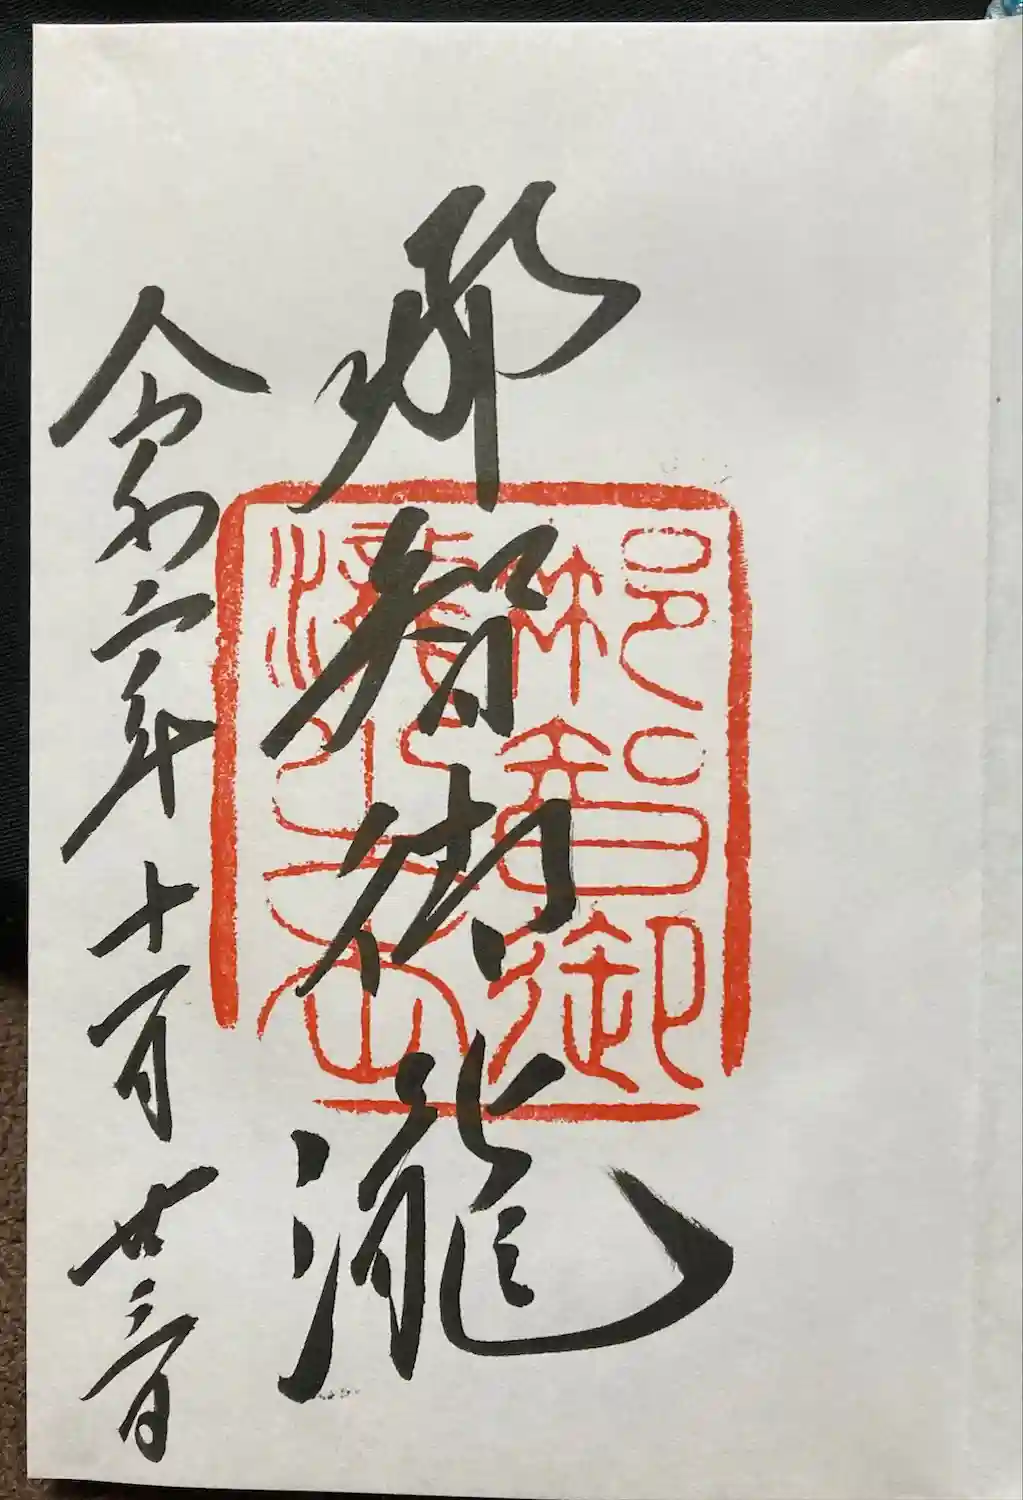 那智御瀧
令和二年十一月廿三日